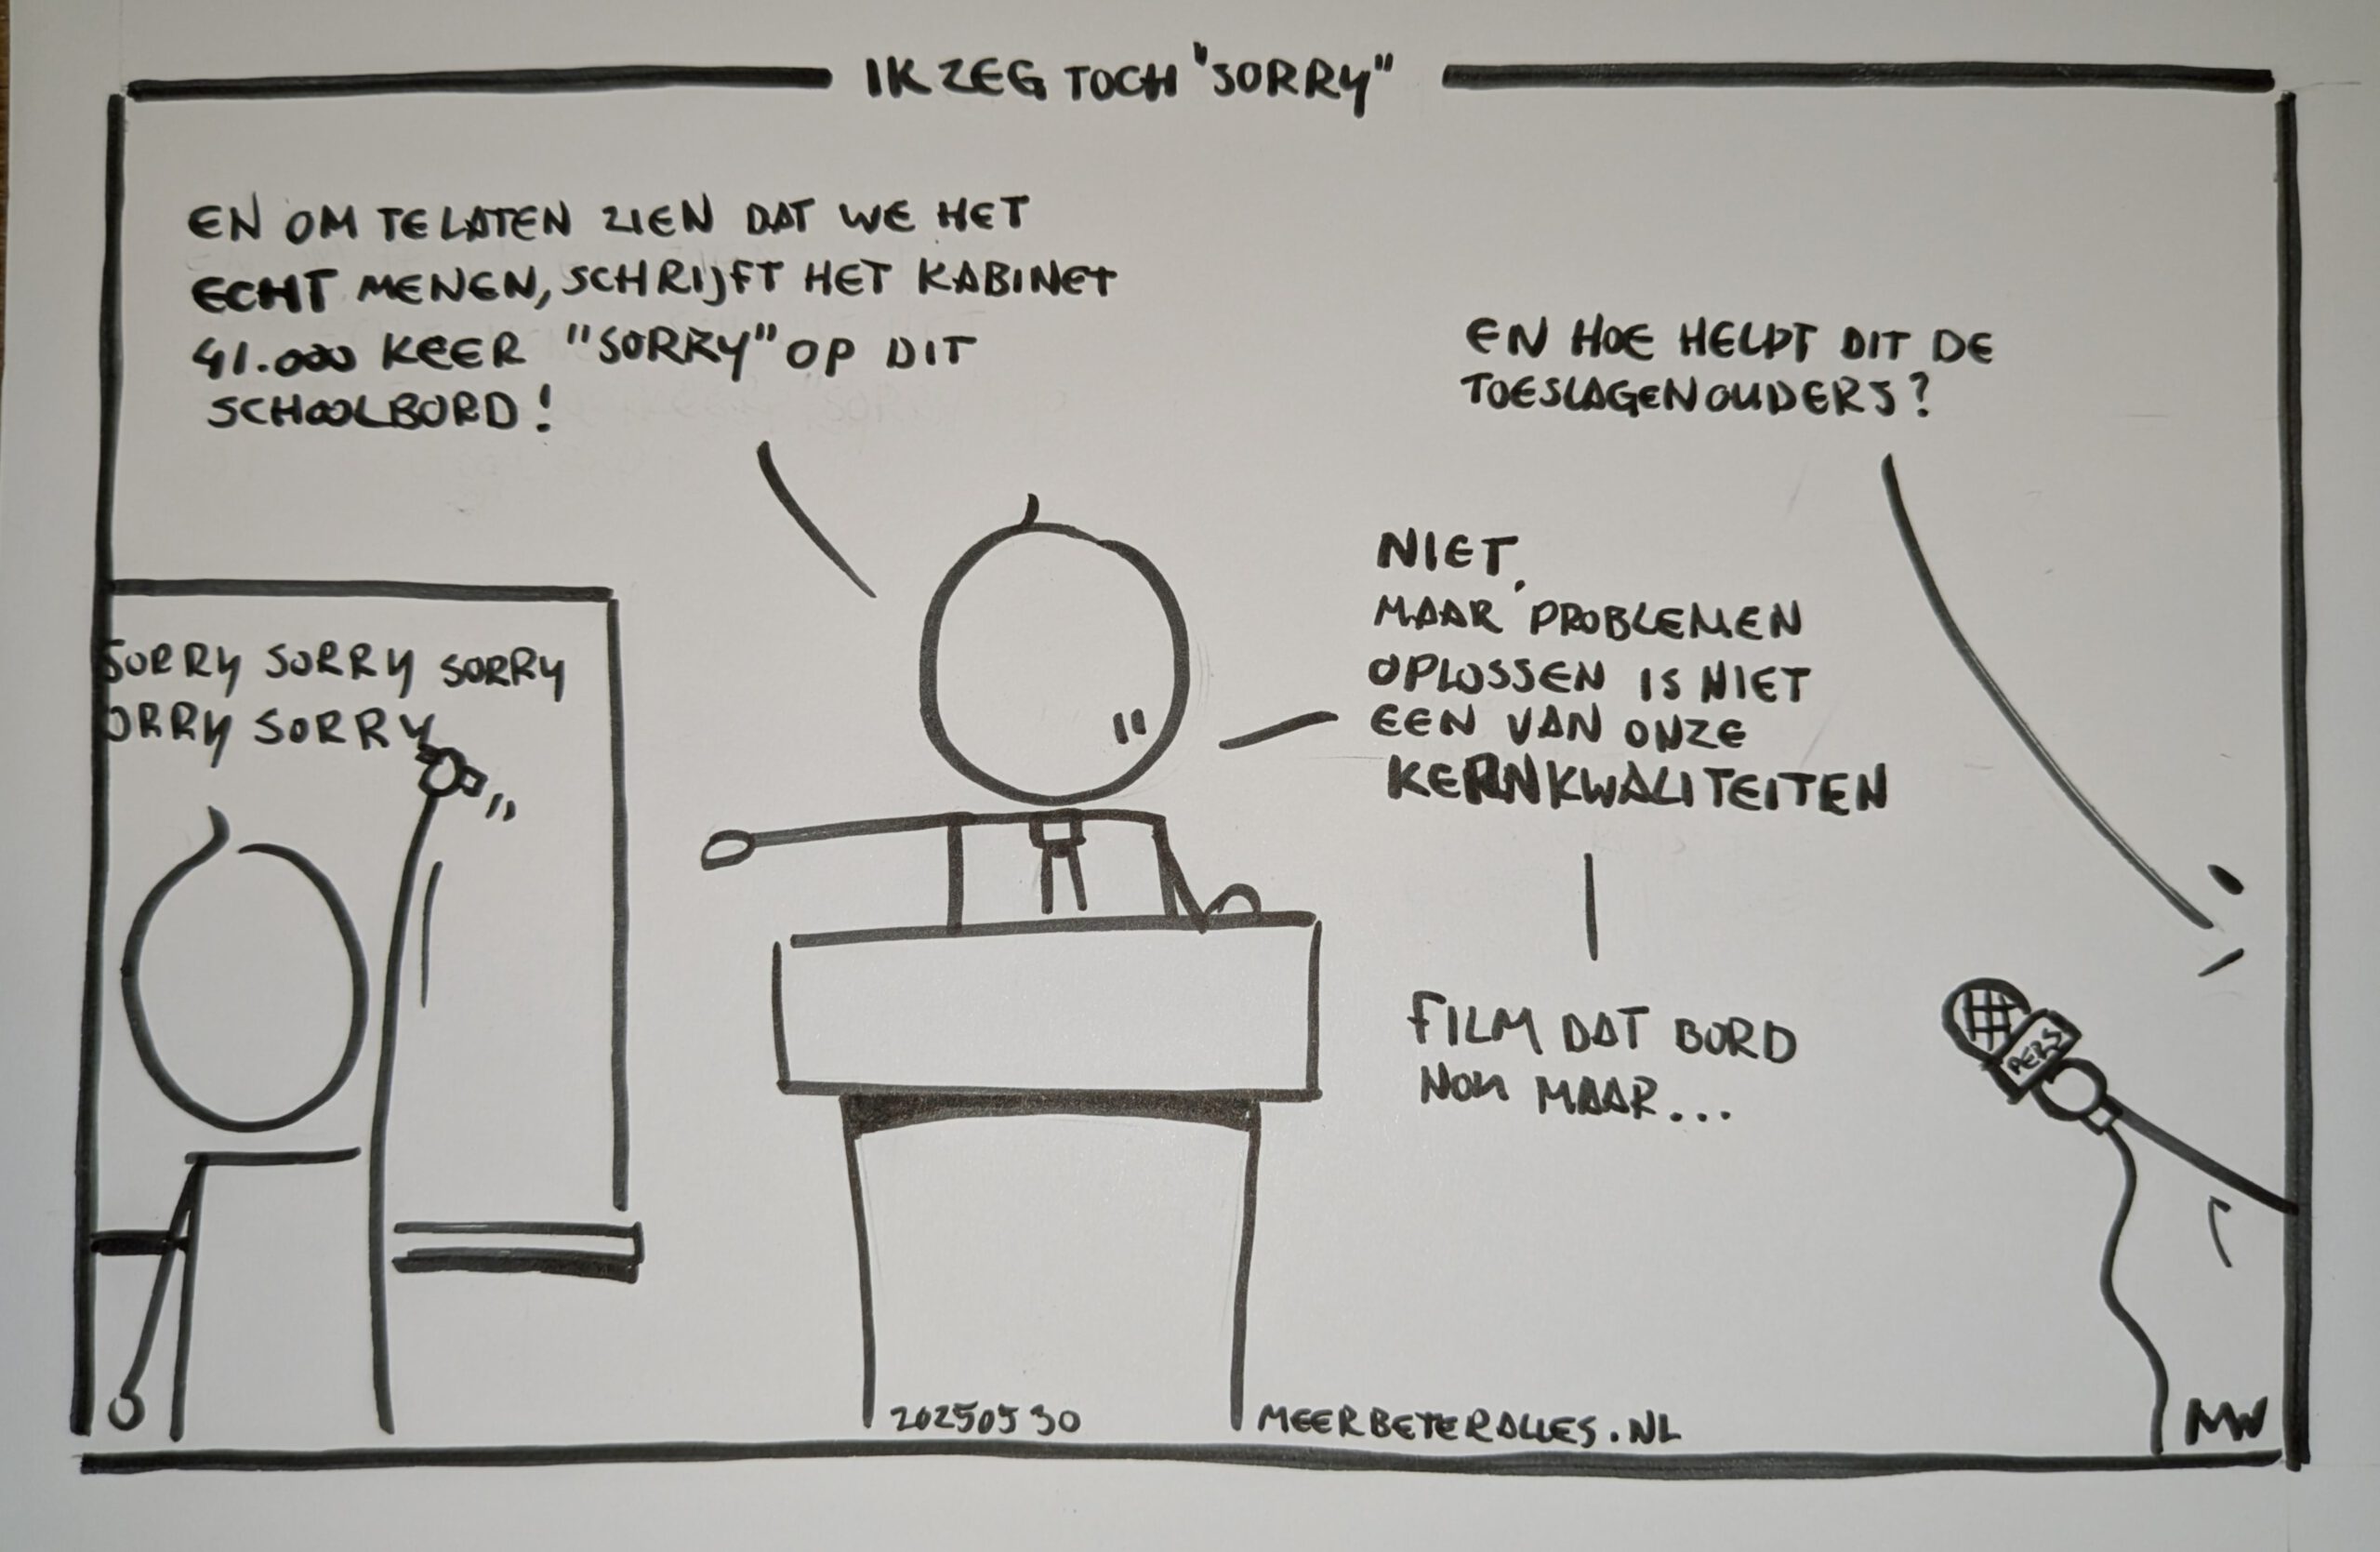 IK ZEG TOCH "SORRY"
EN OM TE LATEN ZIEN DAT WE HET
ECHT MENEN, SCHRIJFT HET KABINET
41.000 KEER "SORRY" OP DIT
SCHOOLBORD!
EN HOE HELPT DIT DE
TOESLAGENOUDERS?
NIET,
MAAR PROBLEMEN
OPLOSSEN IS NIET
EEN VAN ONZE
KERNKWALITEITEN
SORRY SORRY SORRY
ORRY SORRY
FILM DAT BORD
NOU MAAR...
PERS
20250530
MEERBETERALLES.NL
MW